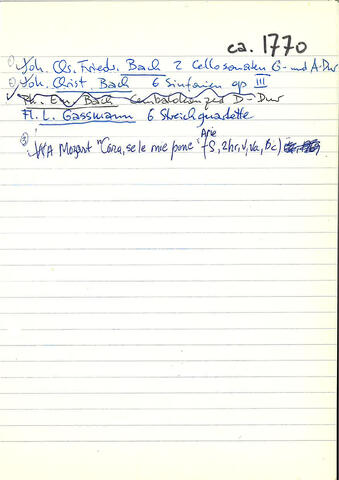 ca. 1770
1) Joh. Chr. Friedr. Bach 2 Cellosonaten G- und A-Dur
2) Joh. Christ. Bach 6 Sinfonien op III
Ph. Em. Bach Cembalokonzert D-Dur
Fl. L. Gassmann 6 Streichquartette
3) WA Mozart "Cara, se le mie pene" Arie f S, 2hr, v, va, Bc)